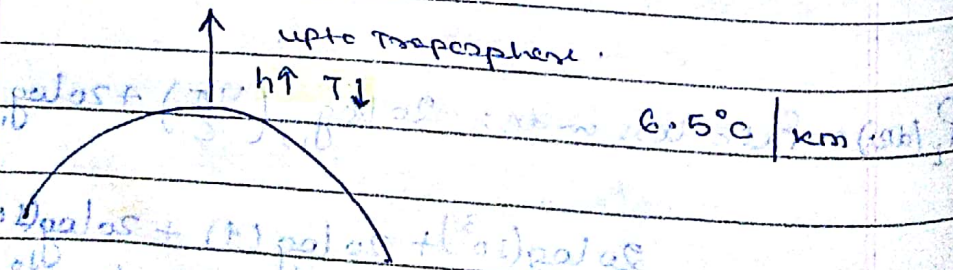 upto Trapcsphere.
h↑ T↓
6.5°C | km